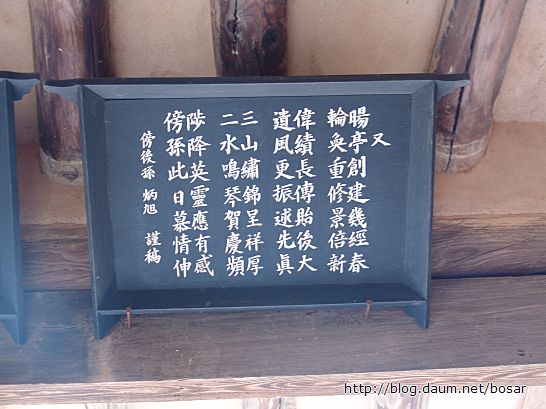 又
暘亭創建幾經春
輪奐重修景倍新
偉績長傳貽後大
遺風更振逑先眞
三山繡錦呈祥厚
二水鳴琴賀慶頻
陟降英靈應有感
傍孫此日慕情伸
傍後孫 炳旭 謹稿
http://blog.daum.net/bosar